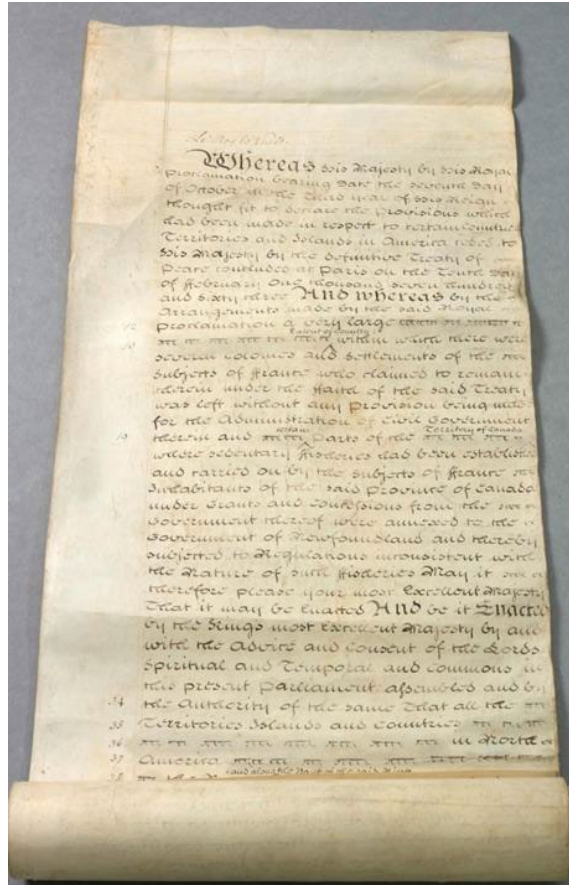 Le Roy le Veult
Whereas His Majesty by His Royal
Proclamation bearing Date the seventh Day
of October in the third year of His Reign
thought fit to declare the Provisions which
had been made in respect to certain Countries
Territories and Islands in America ceded to
His Majesty by the definitive Treaty of
Peace concluded at Paris on the Tenth Day
of ffebruary One thousand seven hundred
and sixty three And whereas by the
Arrangements made by the said Royal
12 Proclamation a very large
extent of Country
within which there were
several Colonies and Settlements of the
Subjects of ffrance who claimed to remain
therein under the ffaith of the said Treaty
was left without any Provision being made
for the Administration of Civil Government
certain Territory of Canada
19 therein and Parts of the
where sedentary ffisheries had been established
and carried on by the Subjects of ffrance
Inhabitants of the said Province of Canada
under Grants and Concessions from the
Government thereof were annexed to the
Government of Newfoundland and thereby
subjected to Regulations inconsistent with
the Nature of such ffisheries May it
therefore please your most Excellent Majesty
That it may be Enacted And be it Enacted
by the Kings most Excellent Majesty by and
with the Advice and Consent of the Lords
Spiritual and Temporal and Commons in
this present Parliament assembled and by
34 the Authority of the same That all the
35 Territories Islands and Countries
36 in North
37 America